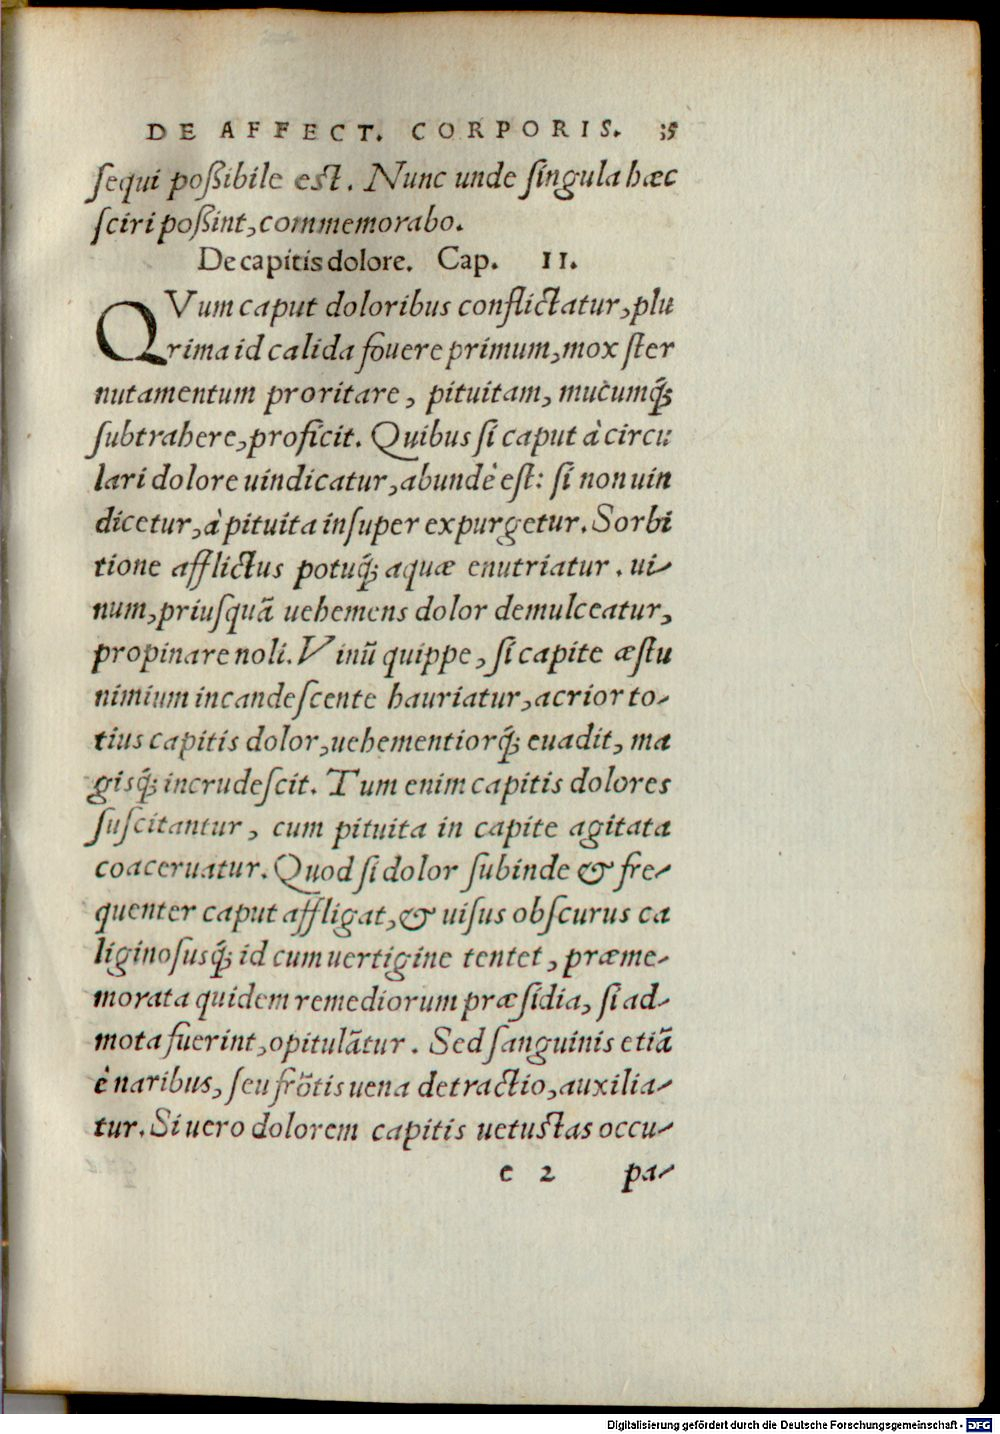 DE AFFECT. CORPORIS. 35
sequi poßibile est. Nunc unde singula hæc
sciri poßint, commemorabo.
De capitis dolore. Cap. II.
QVum caput doloribus conflictatur, plu
rima id calida fouere primum, mox ster
nutamentum proritare, pituitam, mucumq́;
subtrahere, proficit. Quibus si caput à circu
lari dolore uindicatur, abundè est: si non uin
dicetur, à pituita insuper expurgetur. Sorbi
tione afflictus potuq́; aquæ enutriatur. ui-
num, priusquā uehemens dolor demulceatur,
propinare noli. Vinū quippe, si capite æstu
nimium incandescente hauriatur, acrior to-
tius capitis dolor, uehementiorq́; euadit, ma
gisq́; incrudescit. Tum enim capitis dolores
suscitantur, cum pituita in capite agitata
coaceruatur. Quod si dolor subinde & fre-
quenter caput affligat, & uisus obscurus ca
liginosusq́; id cum uertigine tentet, præme-
morata quidem remediorum præsidia, si ad-
mota fuerint, opitulātur. Sed sanguinis etiā
è naribus, seu frōtis uena detractio, auxilia-
tur. Si uero dolorem capitis uetustas occu-
c 2 pa-
Digitalisierung gefördert durch die Deutsche Forschungsgemeinschaft - DFG